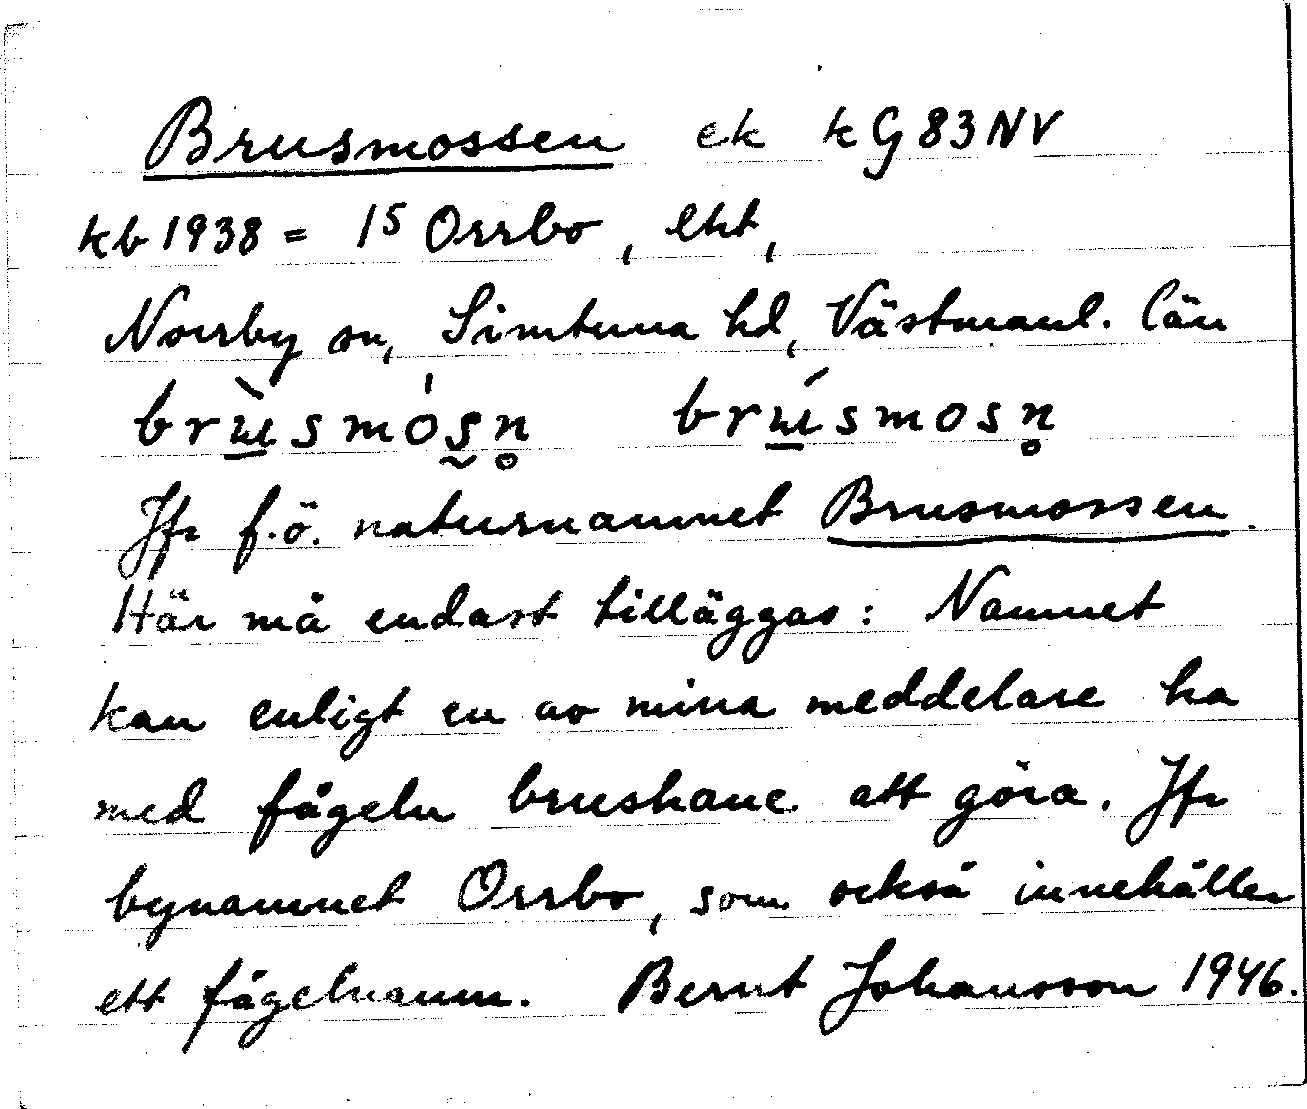 Brusmossen ek kG83NV
kb1938 = 1⁵ Orrbo, lht,
Norrby sn, Simtuna hd, Västmanl. län
brɯ̲̀smóṣn̥ brɯ̲́smosn̥
Jfr f.ö. naturnamnet Brusmossen.
Här må endast tilläggas: Namnet
kan enligt en av mina meddelare ha
med fågeln brushane att göra. Jfr
bynamnet Orrbo, som också innehåller
ett fågelnamn. Bernt Johansson 1946.